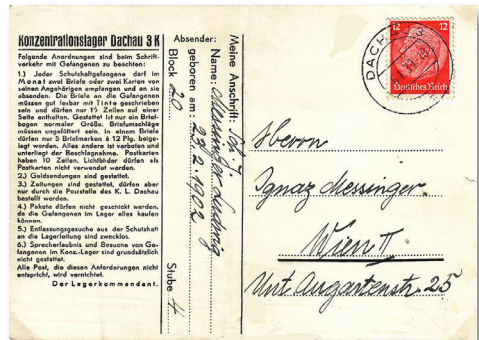 Konzentrationslager Dachau 3 K
Folgende Anordnungen sind beim Schrift-
verkehr mit Gefangenen zu beachten:
1.) Jeder Schutzhaftgefangene darf im
Monat zwei Briefe oder zwei Karten von
seinen Angehörigen empfangen und an sie
absenden. Die Briefe an die Gefangenen
müssen gut lesbar mit Tinte geschrieben
sein und dürfen nur 15 Zeilen auf einer
Seite enthalten. Gestattet ist nur ein Brief-
bogen normaler Größe. Briefumschläge
müssen ungefüttert sein. In einem Briefe
dürfen nur 5 Briefmarken à 12 Pfg. beige-
legt werden. Alles andere ist verboten und
unterliegt der Beschlagnahme. Postkarten
haben 10 Zeilen. Lichtbilder dürfen als
Postkarten nicht verwendet werden.
2.) Geldsendungen sind gestattet.
3.) Zeitungen sind gestattet, dürfen aber
nur durch die Poststelle des K. L. Dachau
bestellt werden.
4.) Pakete dürfen nicht geschickt werden,
da die Gefangenen im Lager alles kaufen
können.
5.) Entlassungsgesuche aus der Schutzhaft
an die Lagerleitung sind zwecklos.
6.) Sprecherlaubnis und Besuche von Ge-
fangenen im Konz.-Lager sind grundsätzlich
nicht gestattet.
Alle Post, die diesen Anforderungen nicht
entspricht, wird vernichtet.
Der Lagerkommandant.
Meine Anschrift:
Absender:
Name: Messinger Ludwig
geboren am: 23.2.1902
Block 20 Stube 4
DACHAU 3
12 12
Deutsches Reich
Herrn
Ignaz Messinger
Wien II
Unt. Augartenstr. 25